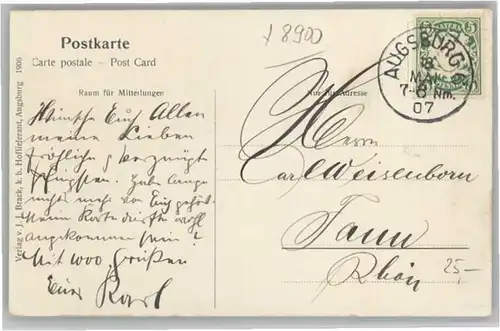 Postkarte
Carte postale - Post Card
Raum für Mitteilungen
Nur für Adresse
γ 8900
BAYERN
5 5
AUGSBURG
18.
MAI
7-8 Nm.
07
Verlag v. J. J. Brack, k. b. Hoflieferant, Augsburg 1906
Wünsche Euch Allen
meine Lieben
fröhliche, vergnügte
Pfingsten. Habe lange
nichts mehr von Euch gehört.
Meine Karte dürfte wohl
angekommen sein?
Mit 1000 Grüßen
Euer Karl
Herrn
Carl Weisenborn
Tann
Rhön
25,-